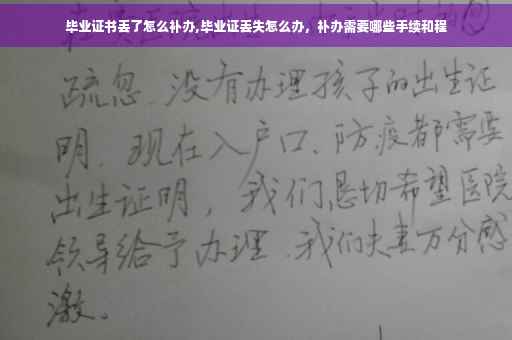 毕业证书丢了怎么补办,毕业证丢失怎么办，补办需要哪些手续和程
疏忽、没有办理孩子的出生证
明、现在入户口、防疫都需要
出生证明，我们恳切希望医院
领导给予办理、我们夫妻万分感
激。